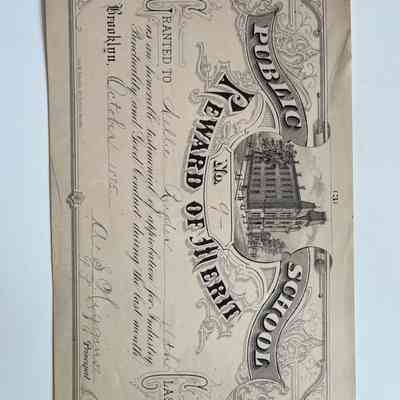 (3)
PUBLIC SCHOOL
No. 9
REWARD OF MERIT
GRANTED TO
CLASS
as an honorable testimonial of approbation for Industry
Punctuality and Good Conduct during the last month
Brooklyn, October
Principal